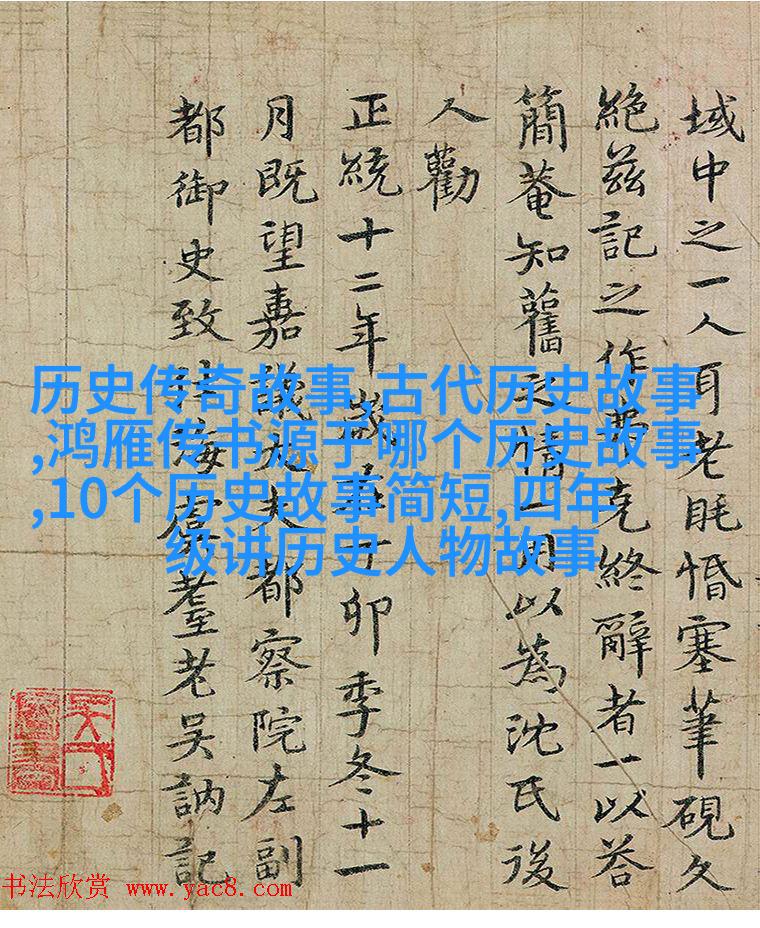 域中之一人耳老眊惛塞筆硯久
絶茲記之作弗克終辭者一以荅
簡菴知舊之情一因以為沈氏後
人勸
正統十二年歲在丁卯季冬十一
月既望嘉議大夫都察院左副
都御史致仕海虞耄老吳訥記
历史传奇故事,古代历史故事
,鸿雁传书源于哪个历史故事
,10个历史故事简短,四年
级讲历史人物故事
书法欣赏 www.yac8.com